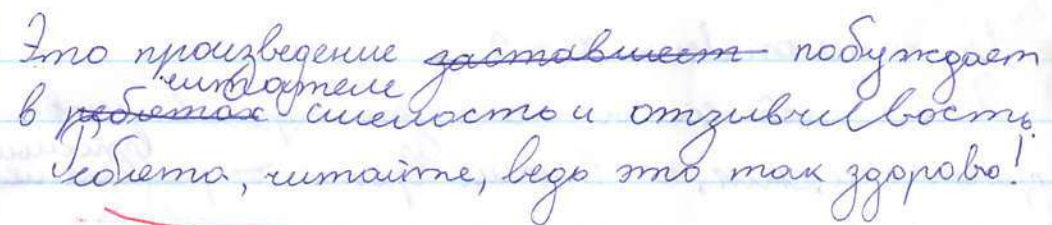 Это произведение заставляет побуждает
читателе
в ребятах смелость и отзывчивость.
Ребята, читайте, ведь это так здорово!